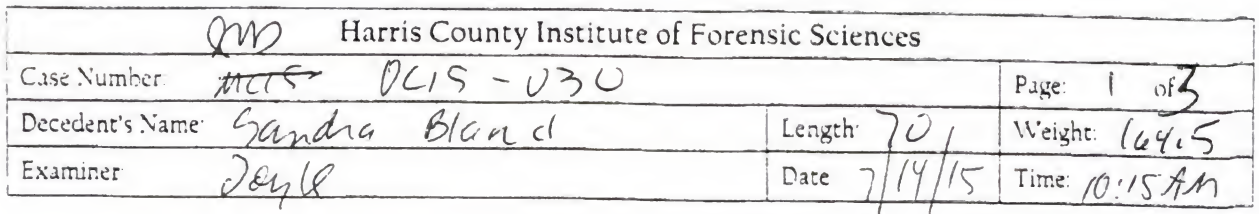 Harris County Institute of Forensic Sciences
Case Number: OC15-030 Page: 1 of 3
Decedent's Name: Sandra Bland Length: 70 Weight: 164.5
Examiner Doyle Date 7/14/15 Time: 10:15 AM